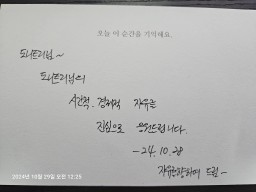 오늘 이 순간을 기억해요.
도니트리님~
도니트리님의
시간적, 경제적 자유를
진심으로 응원드립니다.
-24.10.28
자유를향하여 드림-
2024년 10월 29일 오전 12:25